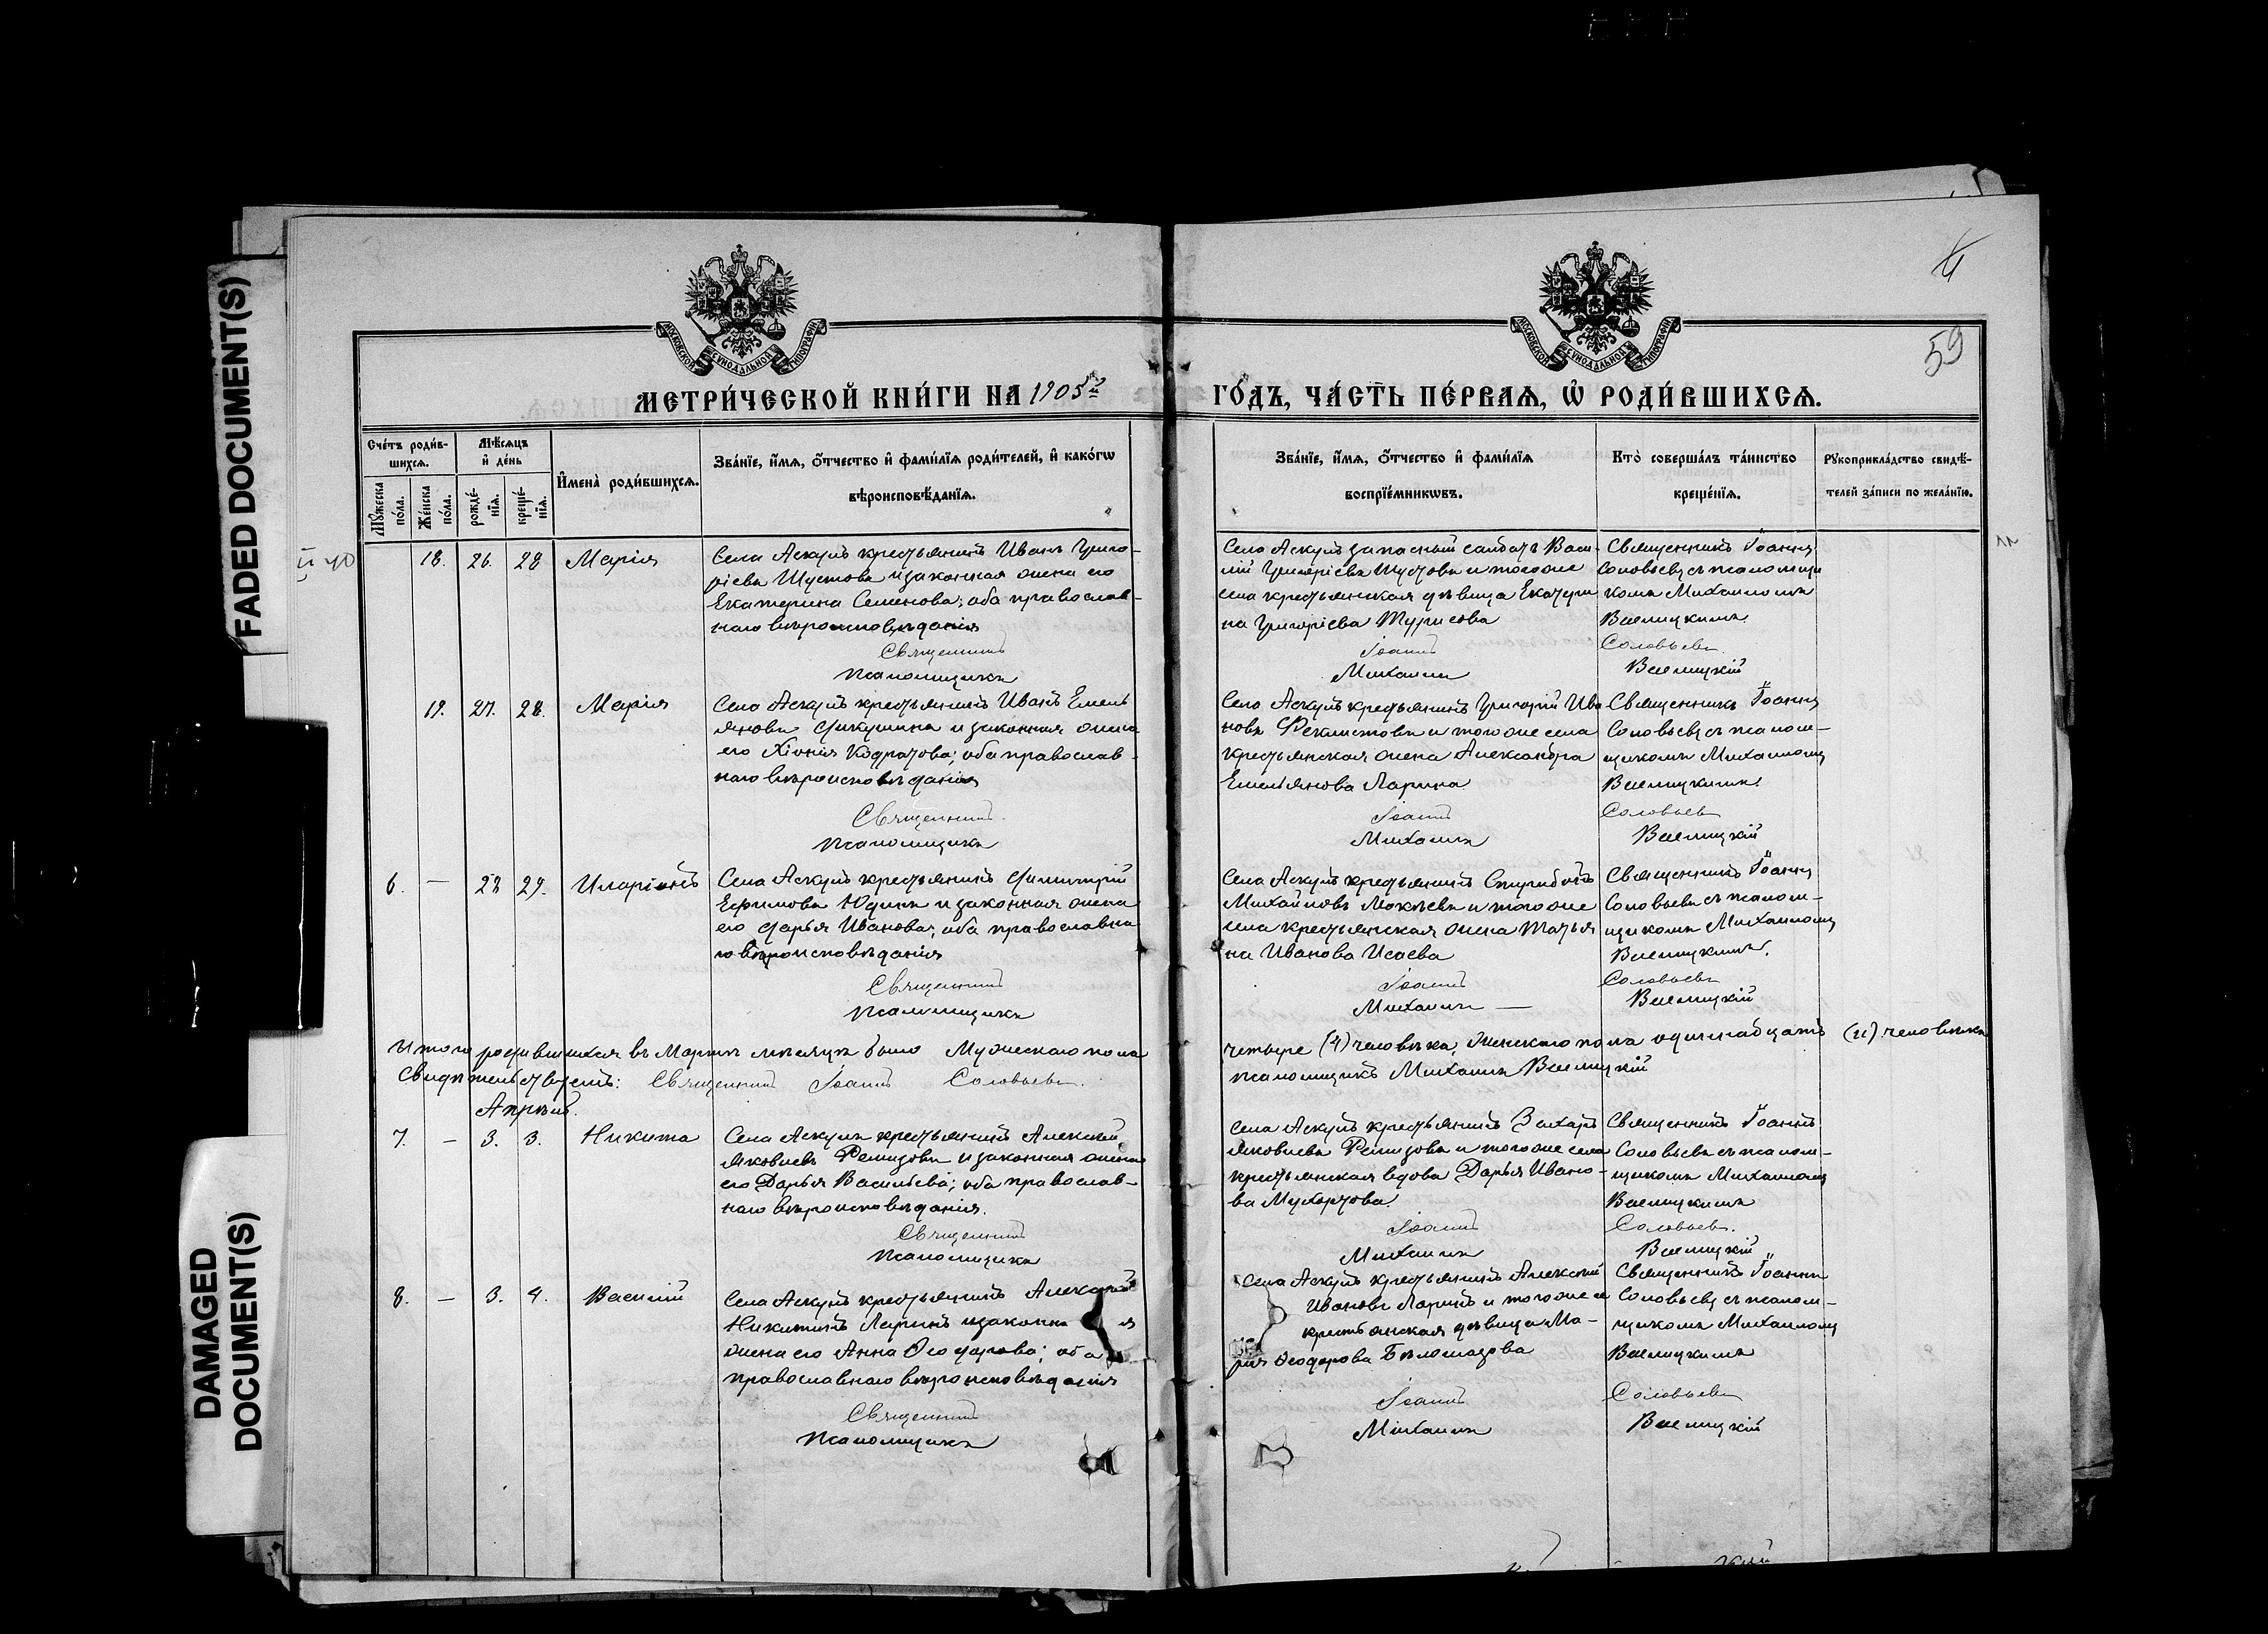 FADED DOCUMENT(S)
DAMAGED
DOCUMENT(S)
4
59
МОСКОВСКОЙ СѴНОДАЛЬНОЙ ТИПОГРАФІИ
МОСКОВСКОЙ СѴНОДАЛЬНОЙ ТИПОГРАФІИ
МЕТРИ́ЧЕСКОЙ КНИ́ГИ НА 1905й
ГО́ДЪ, ЧА́СТЬ ПЕ́РВАѦ, Ѡ҆ РОДИ́ВШИХСѦ.
Сче́тъ роди́в-
шихсѧ.
Мꙋ́жеска по́ла.
Же́нска по́ла.
Мѣ́сѧцъ
и҆ де́нь
рожде́-
нїѧ.
креще́-
нїѧ.
И҆мена̀ роди́вшихсѧ.
Зва́нїе, и҆́мѧ, ѻ҆́тчество и҆ фами́лїѧ роди́телей, и҆ како́гѡ
вѣроисповѣ́данїѧ.
Зва́нїе, и҆́мѧ, ѻ҆́тчество и҆ фами́лїѧ
воспрїе́мникѡвъ.
Кто̀ соверша́лъ та́инство
креще́нїѧ.
Рꙋкоприкла́дство свидѣ́-
телей за́писи по жела́нїю.
18. 26. 28 Марія
Села Аскулъ крестьянинъ Иванъ Григо-
рьевъ Шустовъ и законная жена его
Екатерина Семенова; оба православ-
наго вѣроисповѣданія
Священникъ
Псаломщикъ
Села Аскулъ запасный солдатъ Васи-
лій Григорьевъ Шустовъ и тогоже
села крестьянская дѣвица Екатери
на Григорьева
Іоаннъ
Михаилъ
Священникъ Іоаннъ
Соловьевъ съ псаломщи
комъ Михаиломъ
Соловьевъ
19. 27. 28. Марія
Села Аскулъ крестьянинъ Иванъ Емель
яновъ Чикушинъ и законная жена
его Хіонія Кодратова; оба православ-
наго вѣроисповѣданія
Священникъ
Псаломщикъ
Села Аскулъ крестьянинъ Григорій Ива
новъ Феклистовъ и тогоже села
крестьянская жена Александра
Емельянова Ларина
Іоаннъ
Михаилъ
Священникъ Іоаннъ
Соловьевъ съ псалом-
щикомъ Михаиломъ
Соловьевъ
6. — 28 29. Иларіонъ
Села Аскулъ крестьянинъ Димитрій
Ефимовъ Юдинъ и законная жена
его Дарья Иванова; оба православна
го вѣроисповѣданія
Священникъ
Псаломщикъ
Села Аскулъ крестьянинъ Спиридонъ
Михайловъ Мокѣевъ и тогоже
села крестьянская жена Татья
на Иванова Исаева
Іоаннъ
Михаилъ —
Священникъ Іоаннъ
Соловьевъ съ псалом-
щикомъ Михаиломъ
Соловьевъ
Итого родившихся въ Мартѣ мѣсяцѣ было Мужескаго пола
четыре (4) человѣка, Женскаго пола одинадцать (11) человѣкъ
Свидѣтельствуетъ: Священникъ Іоаннъ Соловьевъ.
псаломщикъ Михаилъ
Апрѣль.
7. — 3. 3. Никита
Села Аскулъ крестьянинъ Алексѣй
Яковлевъ Ремизовъ и законная жена
его Дарья Васильева; оба православ-
наго вѣроисповѣданія.
Священникъ
Псаломщикъ
Села Аскулъ крестьянинъ Захаръ
Яковлевъ Ремизовъ и тогоже села
крестьянская вдова Дарья Ивано-
ва Мухортова.
Іоаннъ
Михаилъ
Священникъ Іоаннъ
Соловьевъ съ псалом-
щикомъ Михаиломъ
Соловьевъ.
8. — 3. 4. Василій
Села Аскулъ крестьянинъ
Никитинъ Ларинъ и законная
жена его Анна Ѳеодорова; оба
православнаго вѣроисповѣданія
Священникъ
Псаломщикъ
Села Аскулъ крестьянинъ Алексѣй
Ивановъ Ларинъ и тогоже се
крестьянская дѣвица Ма-
рія Ѳеодорова Бѣлоглазова
Іоаннъ
Михаилъ
Священникъ Іоаннъ
Соловьевъ съ псалом-
щикомъ Михаиломъ
Соловьевъ